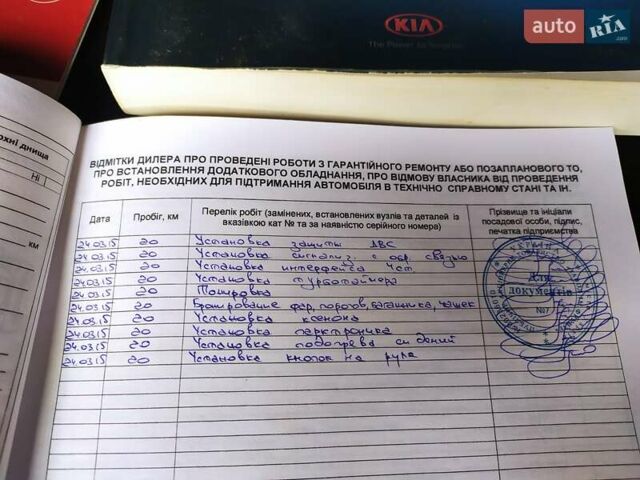 KIA
The Power to Surprise
auto RIA .com
рхні днища
Ні
км
ВІДМІТКИ ДИЛЕРА ПРО ПРОВЕДЕНІ РОБОТИ З ГАРАНТІЙНОГО РЕМОНТУ АБО ПОЗАПЛАНОВОГО ТО,
ПРО ВСТАНОВЛЕННЯ ДОДАТКОВОГО ОБЛАДНАННЯ, ПРО ВІДМОВУ ВЛАСНИКА ВІД ПРОВЕДЕННЯ
РОБІТ, НЕОБХІДНИХ ДЛЯ ПІДТРИМАННЯ АВТОМОБІЛЯ В ТЕХНІЧНО СПРАВНОМУ СТАНІ ТА ІН.
Дата
Пробіг, км
Перелік робіт (замінених, встановлених вузлів та деталей із
вказівкою кат № та за наявністю серійного номера)
Прізвище та ініціали
посадової особи, підпис,
печатка підприємства
24.03.15 20 Установка защиты ДВС
24.03.15 20 Установка сигнализ. с обр. связью
24.03.15 20 Установка интерфейса
24.03.15 20 Установка турботаймера
24.03.15 20 Тонировка
24.03.15 20 Бронирование фар, порогов, багажника, чашек
24.03.15 20 Установка ксенона
24.03.15 20 Установка парктроника
24.03.15 20 Установка подогрева сидений
24.03.15 20 Установка кнопок на руль
Для
документів
№7